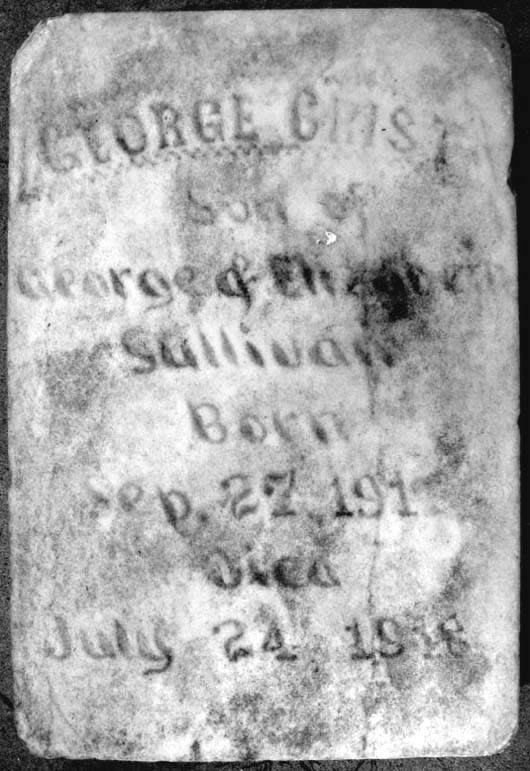 GEORGE
Son of
George & Elizabeth
Sullivan
Born
Sep. 27, 191
Died
July 24